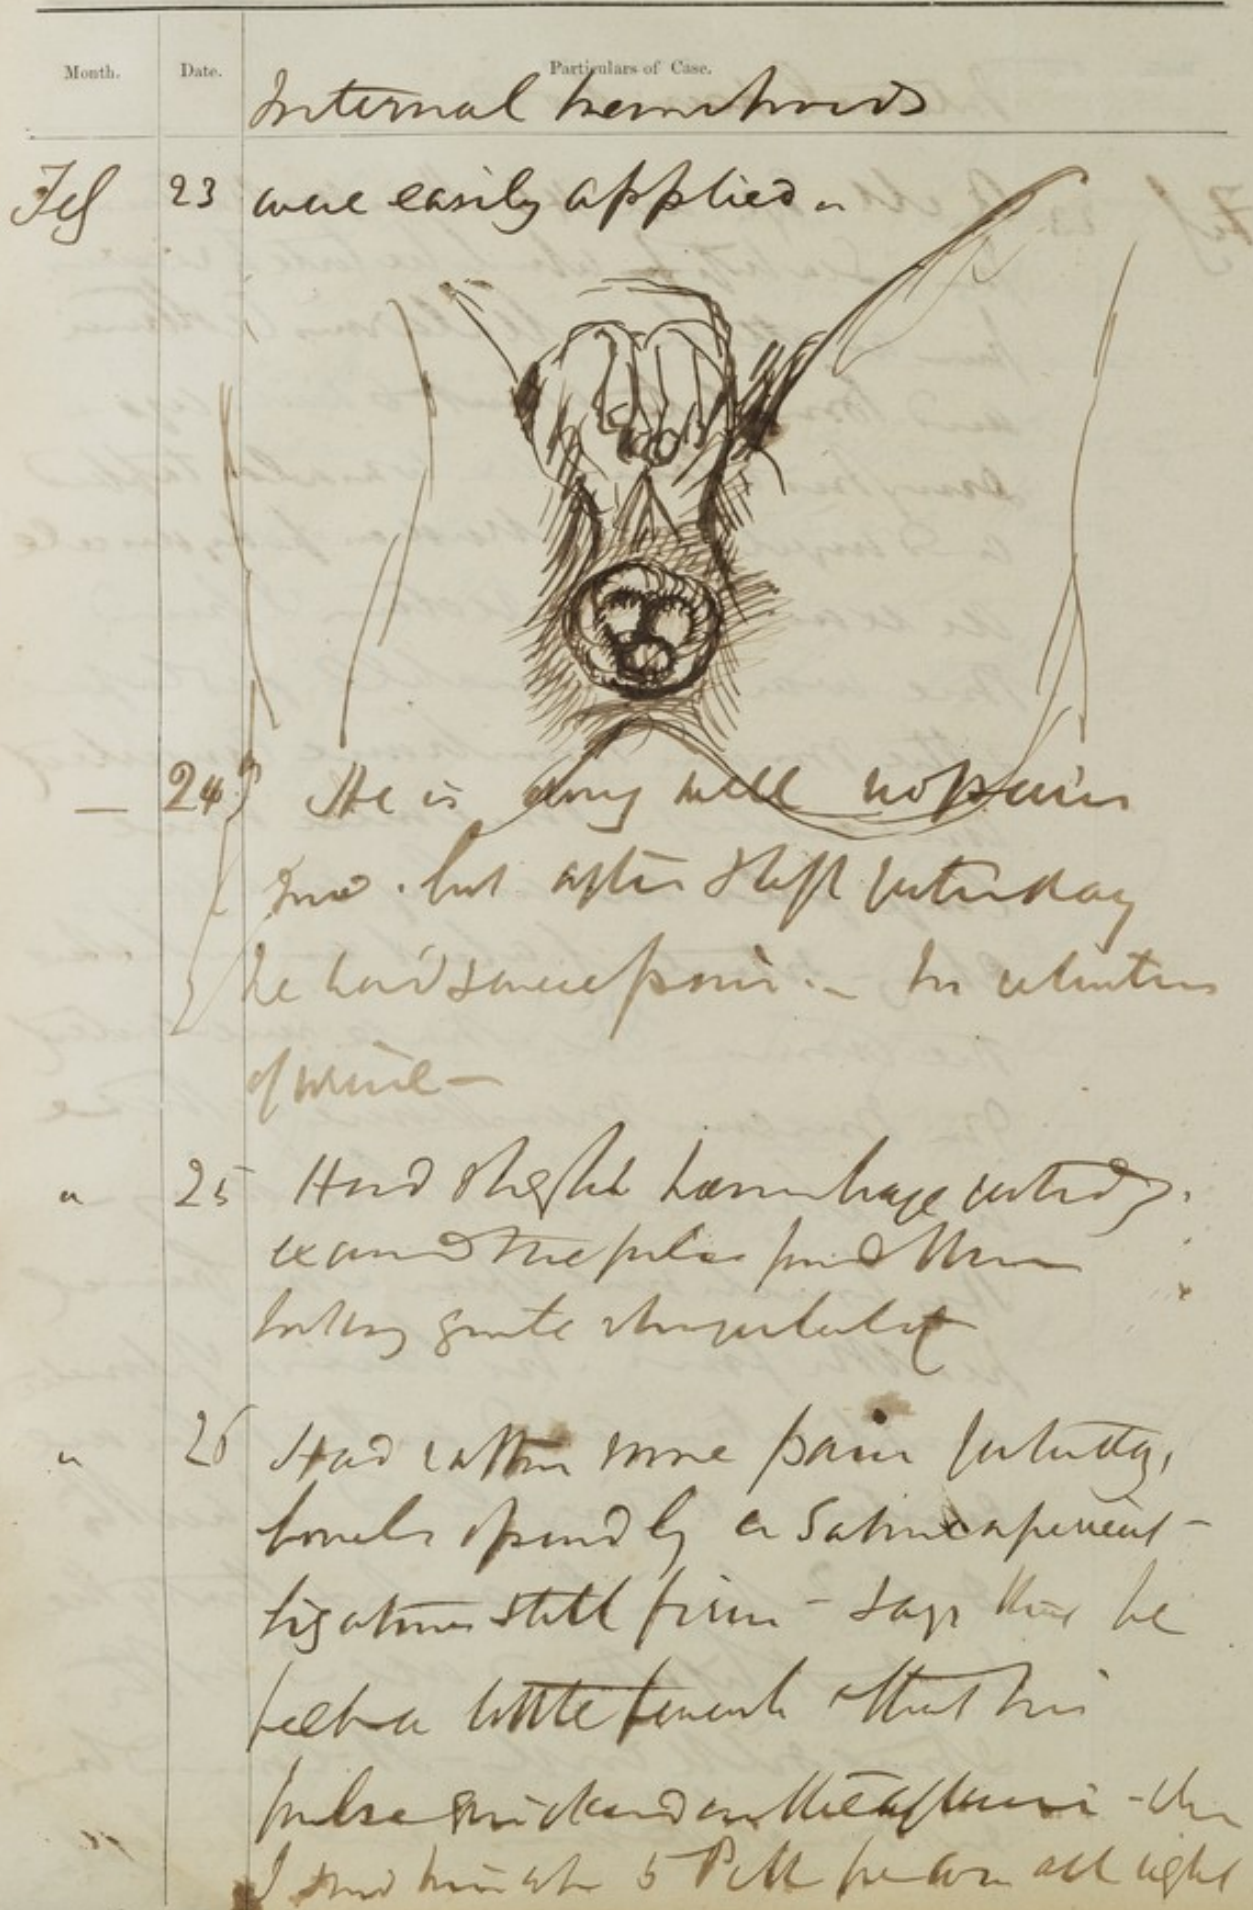 Month. Date. Particulars of Case.
Internal hemorrhoids
Feb 23 were easily applied
— 24 He is doing well no pain
now. but after I left yesterday
he had severe pain. — No retention
of urine —
" 25 Had slight haemorrhage yesterday.
examined the piles found them
looking quite strangulated
" 26 Had rather more pain yesterday,
bowels opened by a Saline aperient —
ligatures still firm — says that he
feels a little feverish & that his
pulse quickened in the afternoon —
I found him at 5 PM he was all right